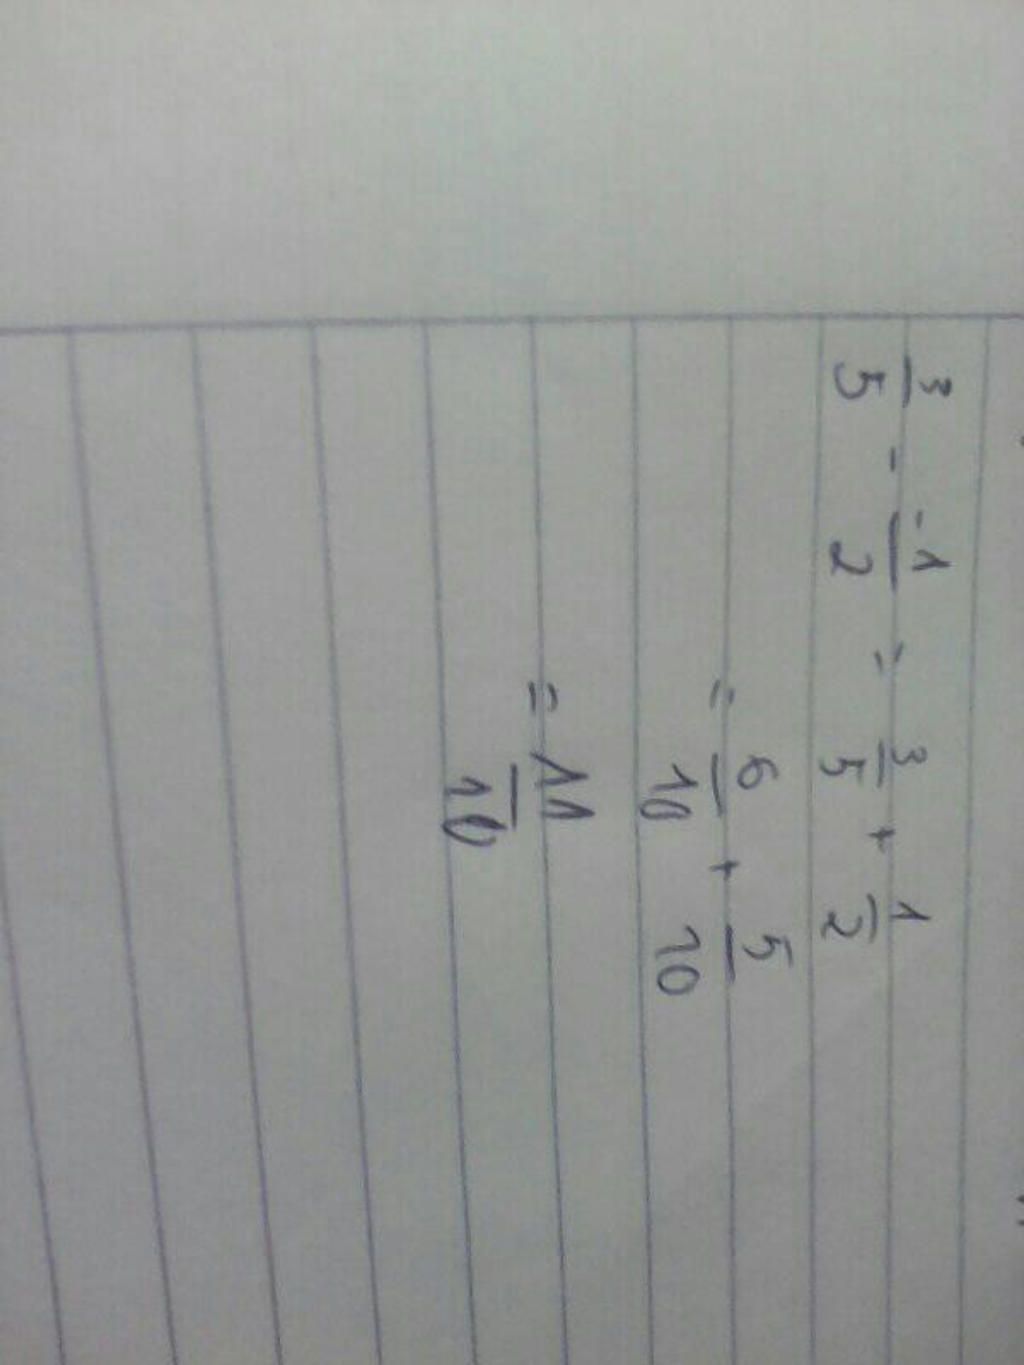 3/5 - -1/2 = 3/5 + 1/2
= 6/10 + 5/10
= 11/10